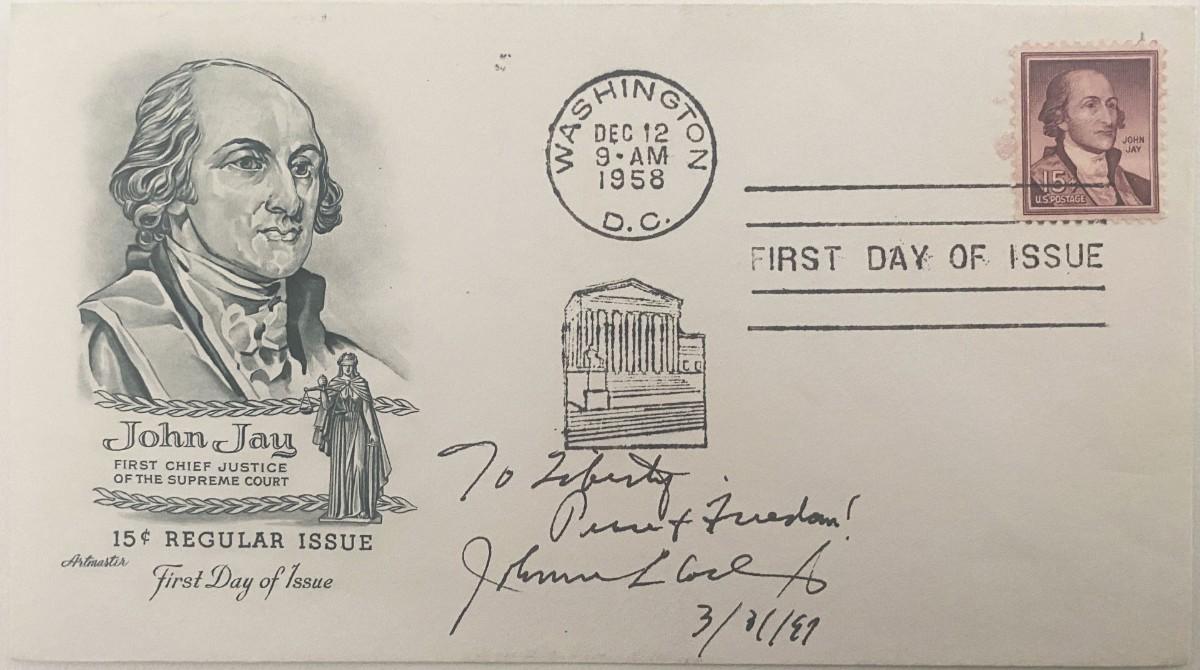 WASHINGTON
DEC 12
9-AM
1958
D.C.
JOHN
JAY
15¢
U.S. POSTAGE
FIRST DAY OF ISSUE
John Jay
FIRST CHIEF JUSTICE
OF THE SUPREME COURT
15¢ REGULAR ISSUE
Artmaster
First Day of Issue
To Liberty
Peace & Freedom!
Johnnie L Coch